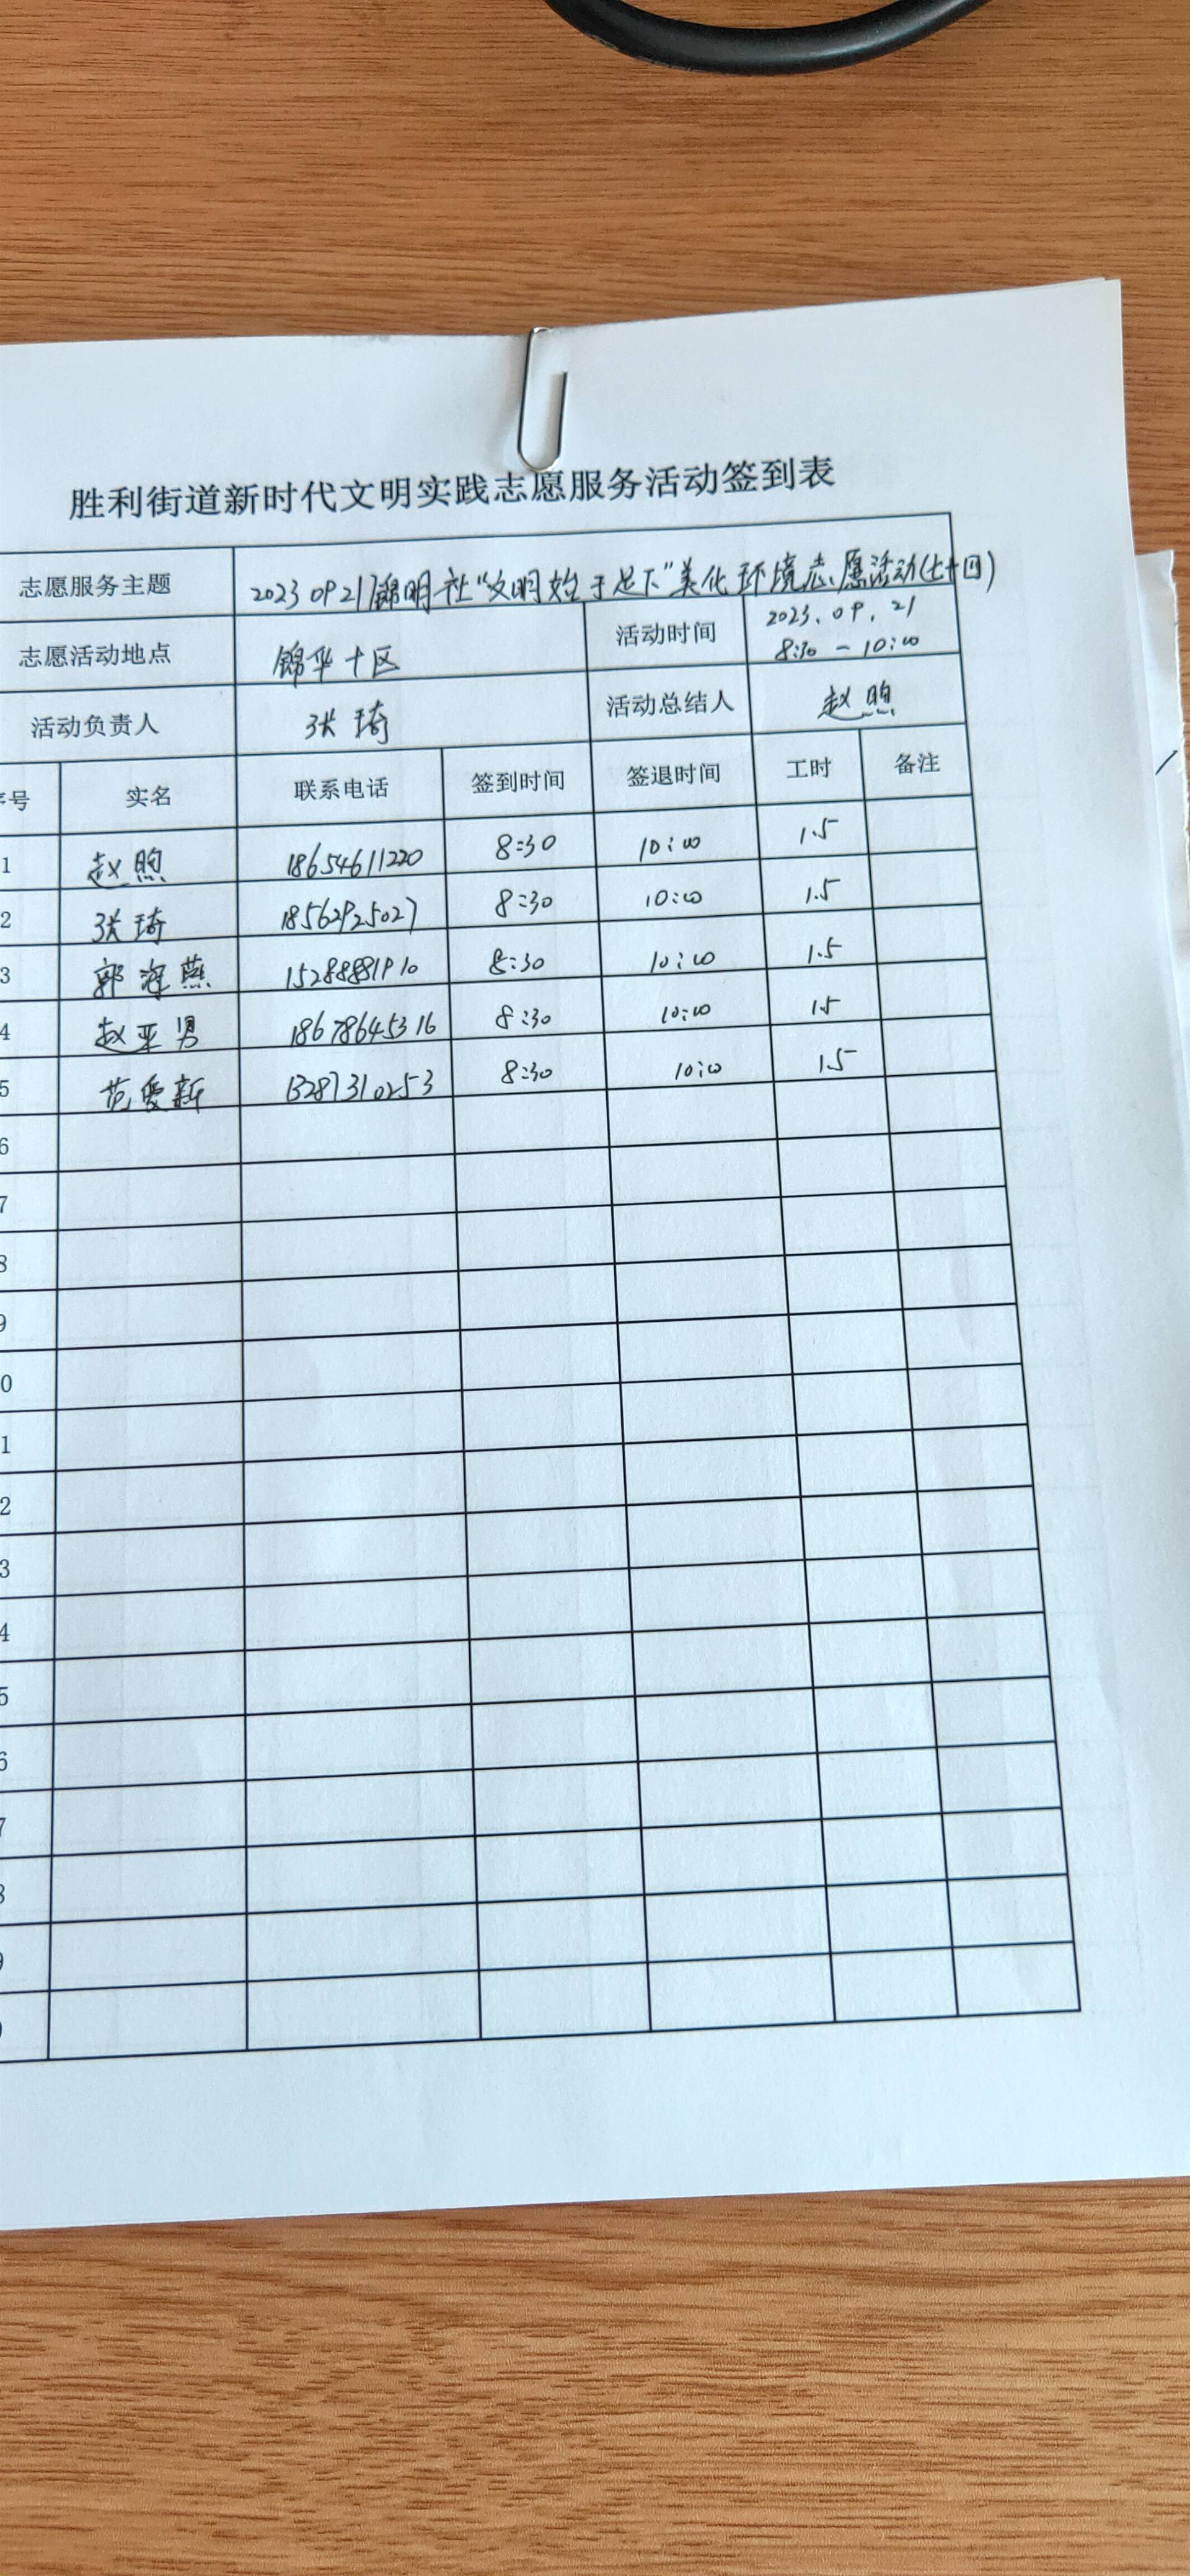 胜利街道新时代文明实践志愿服务活动签到表
志愿服务主题 20230921锦明社"文明始于足下"美化环境志愿活动
志愿活动地点 锦华十区 活动时间 2023.09.21 8:30-10:00
活动负责人 张琦 活动总结人 赵煦
序号 实名 联系电话 签到时间 签退时间 工时 备注
1 赵煦 18654611220 8:30 10:00 1.5
2 张琦 18562925027 8:30 10:00 1.5
3 郭海燕 15288881910 8:30 10:00 1.5
4 赵亚男 18678645316 8:30 10:00 1.5
5 范爱新 13287310253 8:30 10:00 1.5
6
7
8
9
0
1
2
3
4
5
6
7
8
9
0